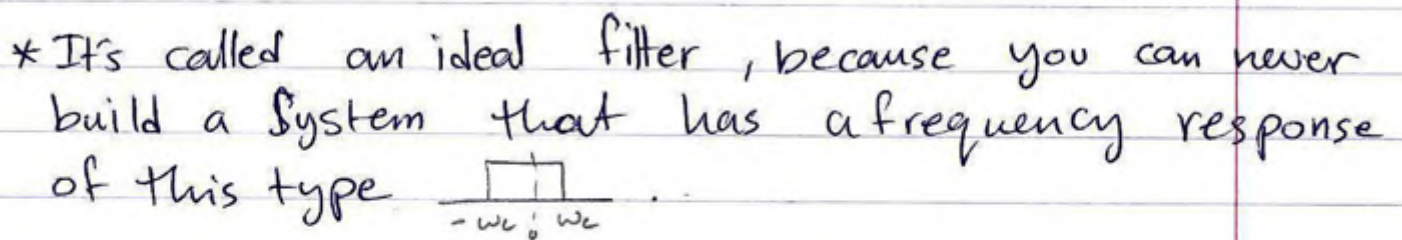 * It's called an ideal filter, because you can never
build a System that has a frequency response
of this type .
-wc 0 wc